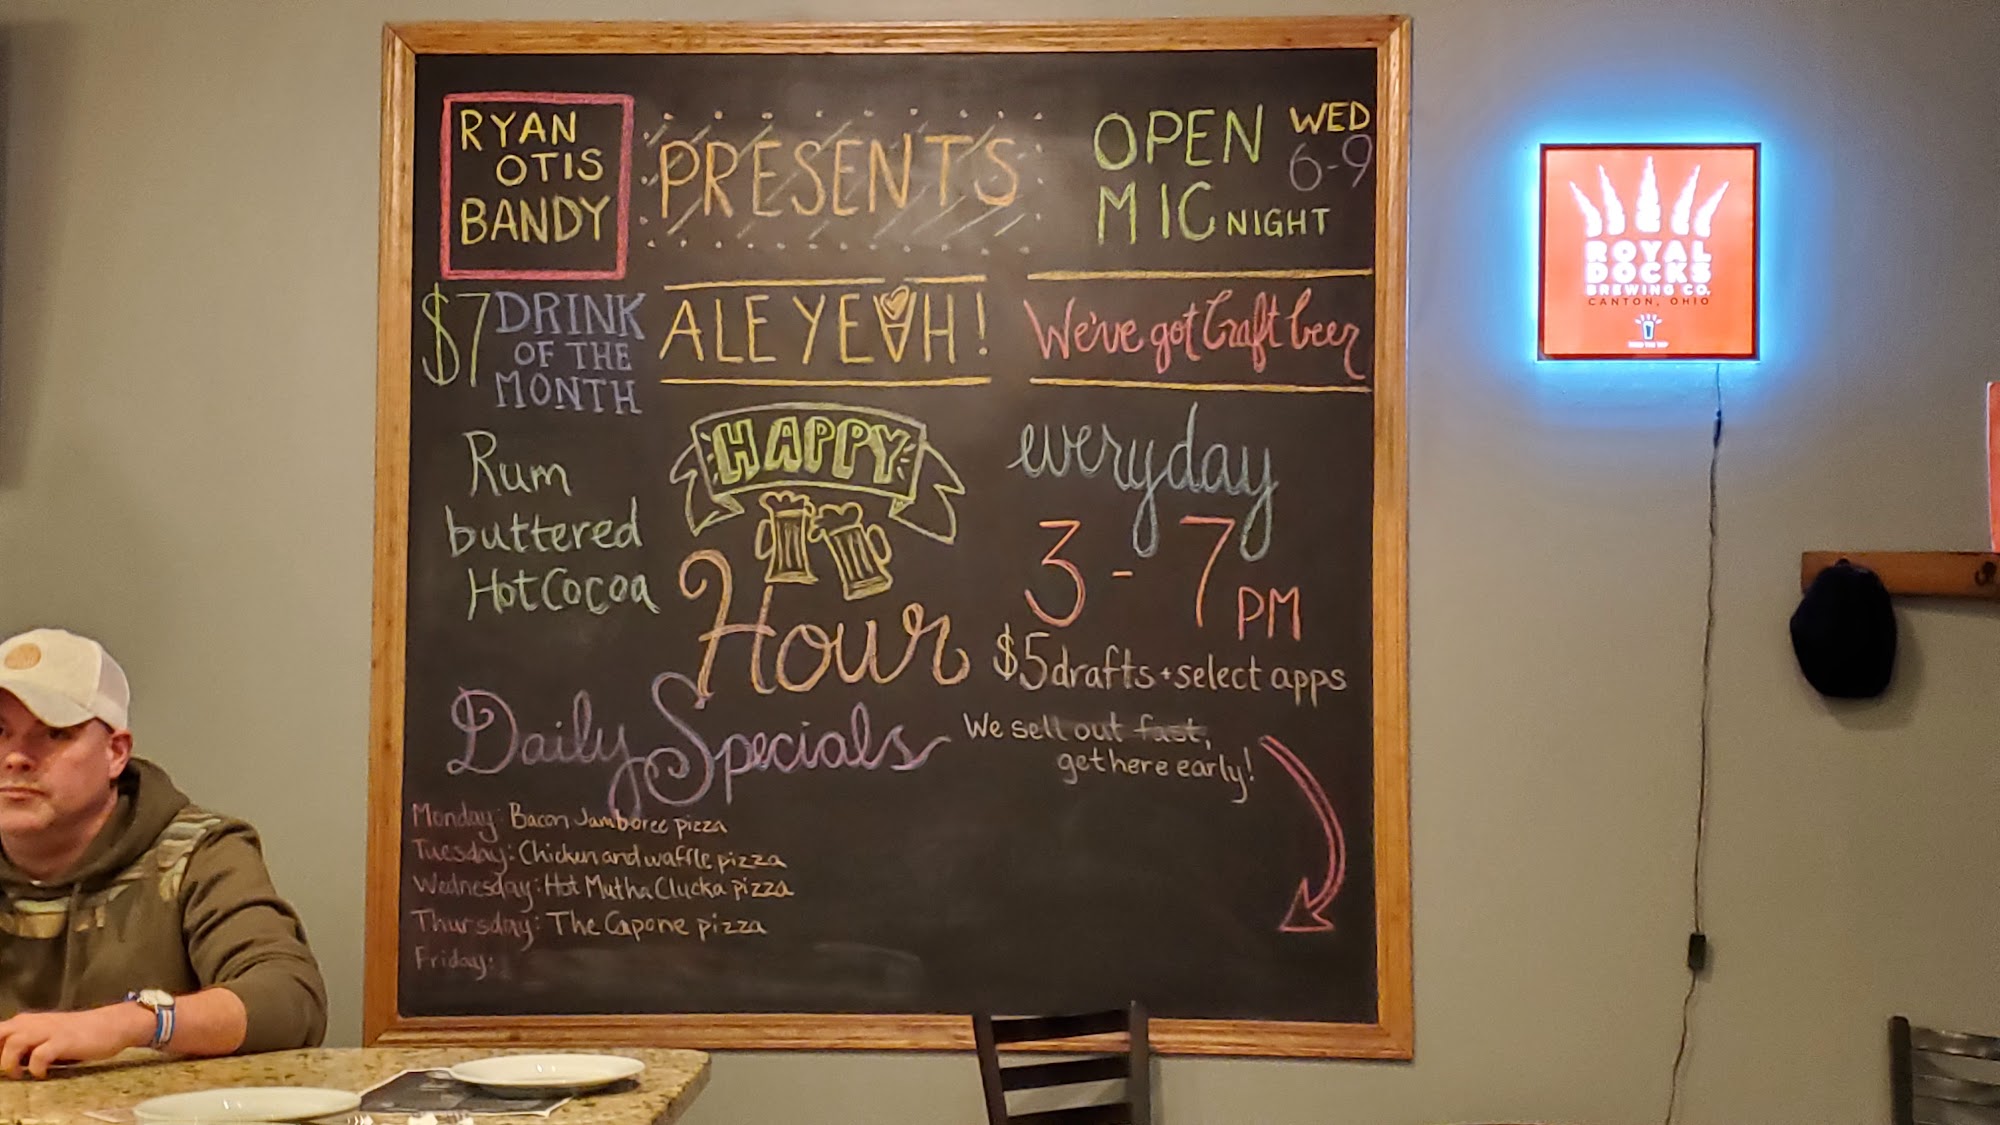 RYAN
OTIS
BANDY
PRESENTS
OPEN
MIC NIGHT
WED
6-9
$7 DRINK
OF THE
MONTH
ALE YEAH!
We've got Craft beer
Rum
buttered
Hot Cocoa
HAPPY
Hour
everyday
3-7PM
$5 drafts + select apps
Daily Specials
We sell out fast,
get here early!
Monday: Bacon Jamboree pizza
Tuesday: Chicken and waffle pizza
Wednesday: Hot Mutha Clucka pizza
Thursday: The Capone pizza
Friday:
ROYAL
DOCKS
BREWING CO.
CANTON, OHIO